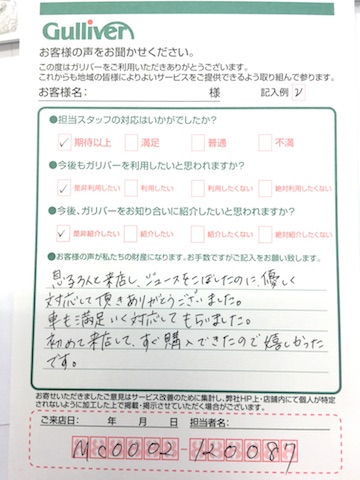 Gulliver
お客様の声をお聞かせください。
この度はガリバーをご利用いただきありがとうございます。
これからも地域の皆様によりよいサービスをご提供できるよう取り組んで参ります。
お客様名： 様 記入例 レ
●担当スタッフの対応はいかがでしたか？
✓ 期待以上 満足 普通 不満
●今後もガリバーを利用したいと思われますか？
✓ 是非利用したい 利用したい 利用したくない 絶対利用したくない
●今後、ガリバーをお知り合いに紹介したいと思われますか？
✓ 是非紹介したい 紹介したい 紹介したくない 絶対紹介したくない
●お客様の声が私たちの財産になります。お手数ですがご記入をお願い致します。
と来店し、ジュースをこぼしたのに、優しく
対応して頂きありがとうございました。
車も満足いく対応してもらいました。
初めて来店して、すぐ購入できたので嬉しかった
です。
お寄せいただきましたご意見はサービス改善のために集計し、弊社HP上・店舗内にて個人が特定
されないように加工した上で掲載・掲示させていただく場合がございます。
ご来店日： 年 月 日 担当者名：
MC0002-120087